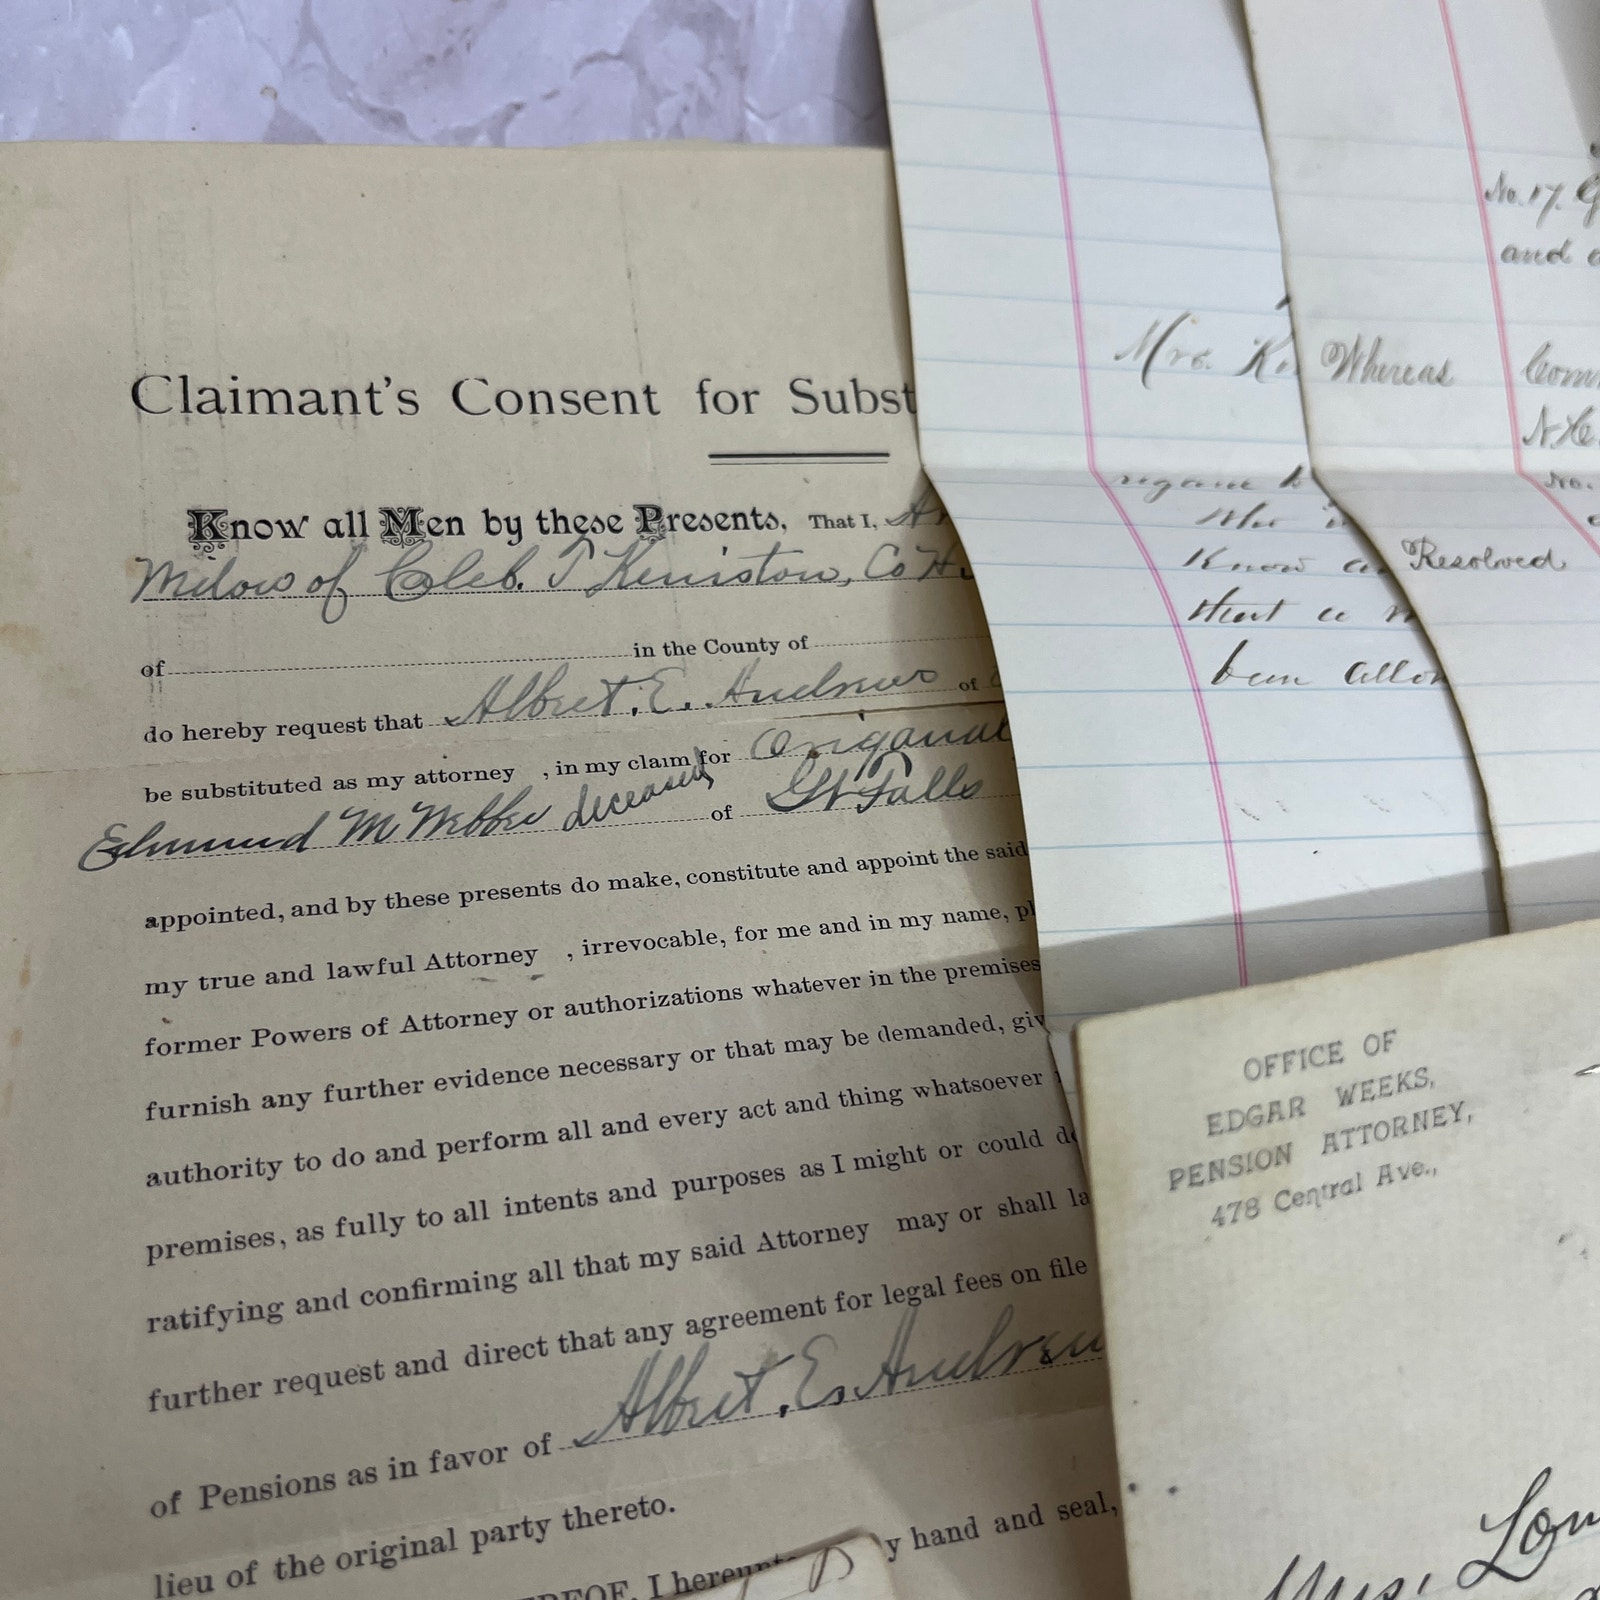 Claimant's Consent for Subst
Know all Men by these Presents, That I,
Widow of Caleb. T Keniston, Co H.
of in the County of
do hereby request that Albert. E. Andrews of
be substituted as my attorney , in my claim for Origanal
Edmund M Webber deceased, of Gt Falls
appointed, and by these presents do make, constitute and appoint the said
my true and lawful Attorney , irrevocable, for me and in my name, pl
former Powers of Attorney or authorizations whatever in the premises
furnish any further evidence necessary or that may be demanded, giv
authority to do and perform all and every act and thing whatsoever
premises, as fully to all intents and purposes as I might or could do
ratifying and confirming all that my said Attorney may or shall la
further request and direct that any agreement for legal fees on file
of Pensions as in favor of Albert. E. Andrew
lieu of the original party thereto.
EREOF, I hereunto y hand and seal,
Mrs. K
who
Know a
that a
been allo
No. 17. G
and a
Whereas Com
N.H.
No.
Resolved
OFFICE OF
EDGAR WEEKS,
PENSION ATTORNEY,
478 Central Ave.,
Mrs. Lou